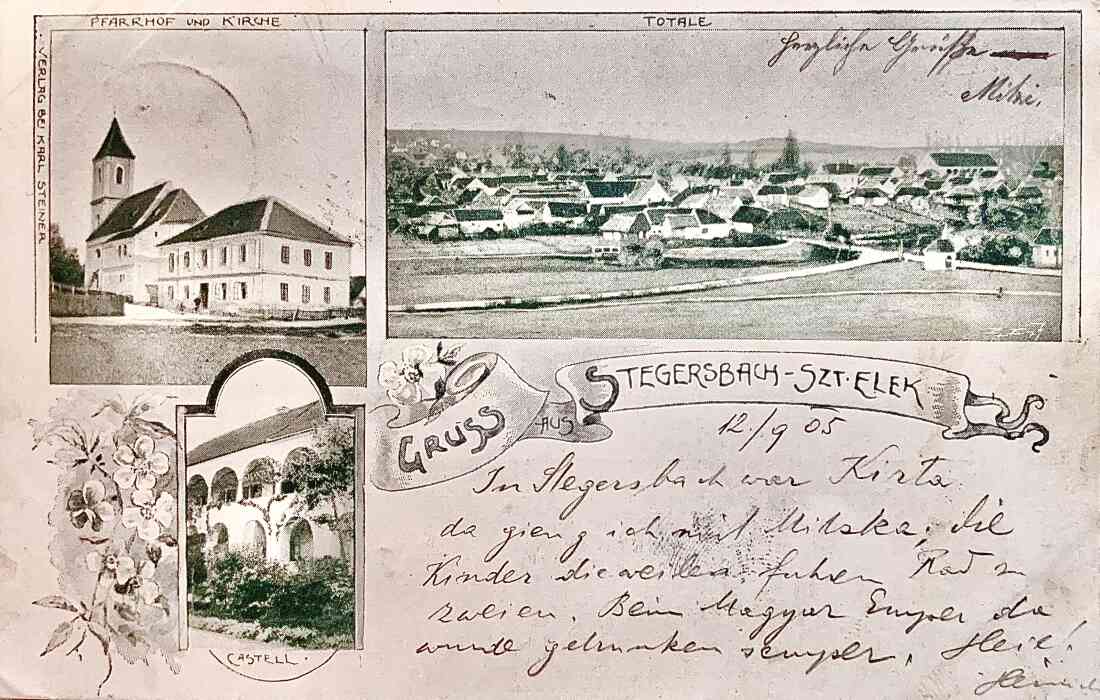 PFARRHOF UND KIRCHE
TOTALE
VERLAG BEI KARL STEINER
Herzliche Grüsse
Mitzi.
GRUSS AUS STEGERSBACH-SZT. ELEK
12./9 05
In Stegersbach war Kirta
da gieng ich mit Mitzka, die
Kinder dieweilen fuhren Rad zu
zweien. Beim Magyar Emper da
wurde getrunken semper, Heil!
CASTELL.